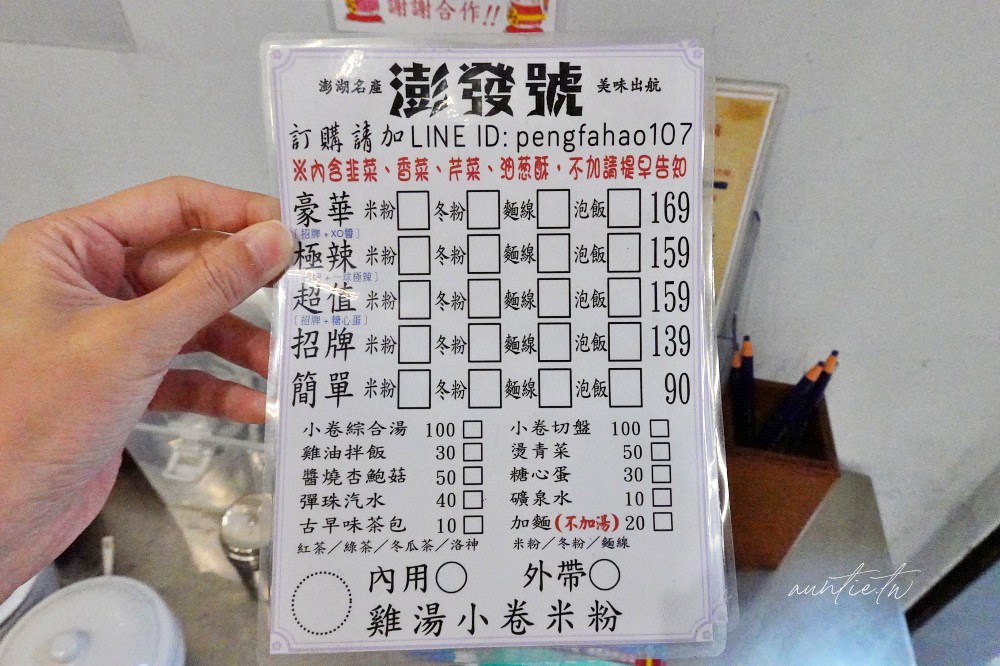 謝謝合作!!
澎湖名產 澎發號 美味出航
訂購請加LINE ID: pengfahao107
※內含韭菜、香菜、芹菜、油蔥酥，不加請提早告知
豪華 米粉 冬粉 麵線 泡飯 169
[招牌+XO醬]
極辣 米粉 冬粉 麵線 泡飯 159
+一球極辣]
超值 米粉 冬粉 麵線 泡飯 159
[招牌+糖心蛋]
招牌 米粉 冬粉 麵線 泡飯 139
簡單 米粉 冬粉 麵線 泡飯 90
小卷綜合湯 100 小卷切盤 100
雞油拌飯 30 燙青菜 50
醬燒杏鮑菇 50 糖心蛋 30
彈珠汽水 40 礦泉水 10
古早味茶包 10 加麵(不加湯) 20
紅茶／綠茶／冬瓜茶／洛神 米粉／冬粉／麵線
內用 外帶
雞湯小卷米粉
auntie.tw